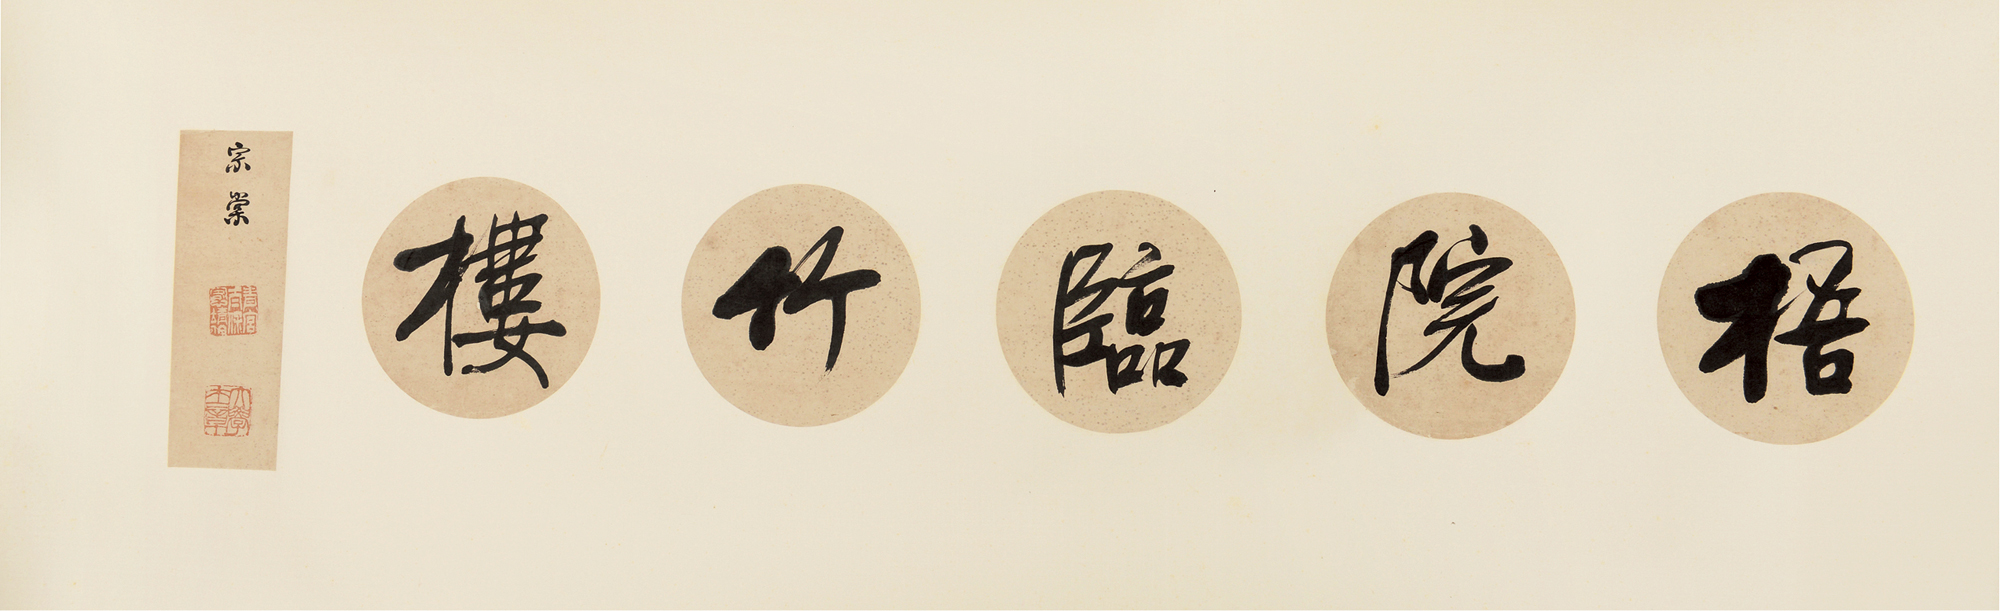 梧院臨竹樓
宗棠